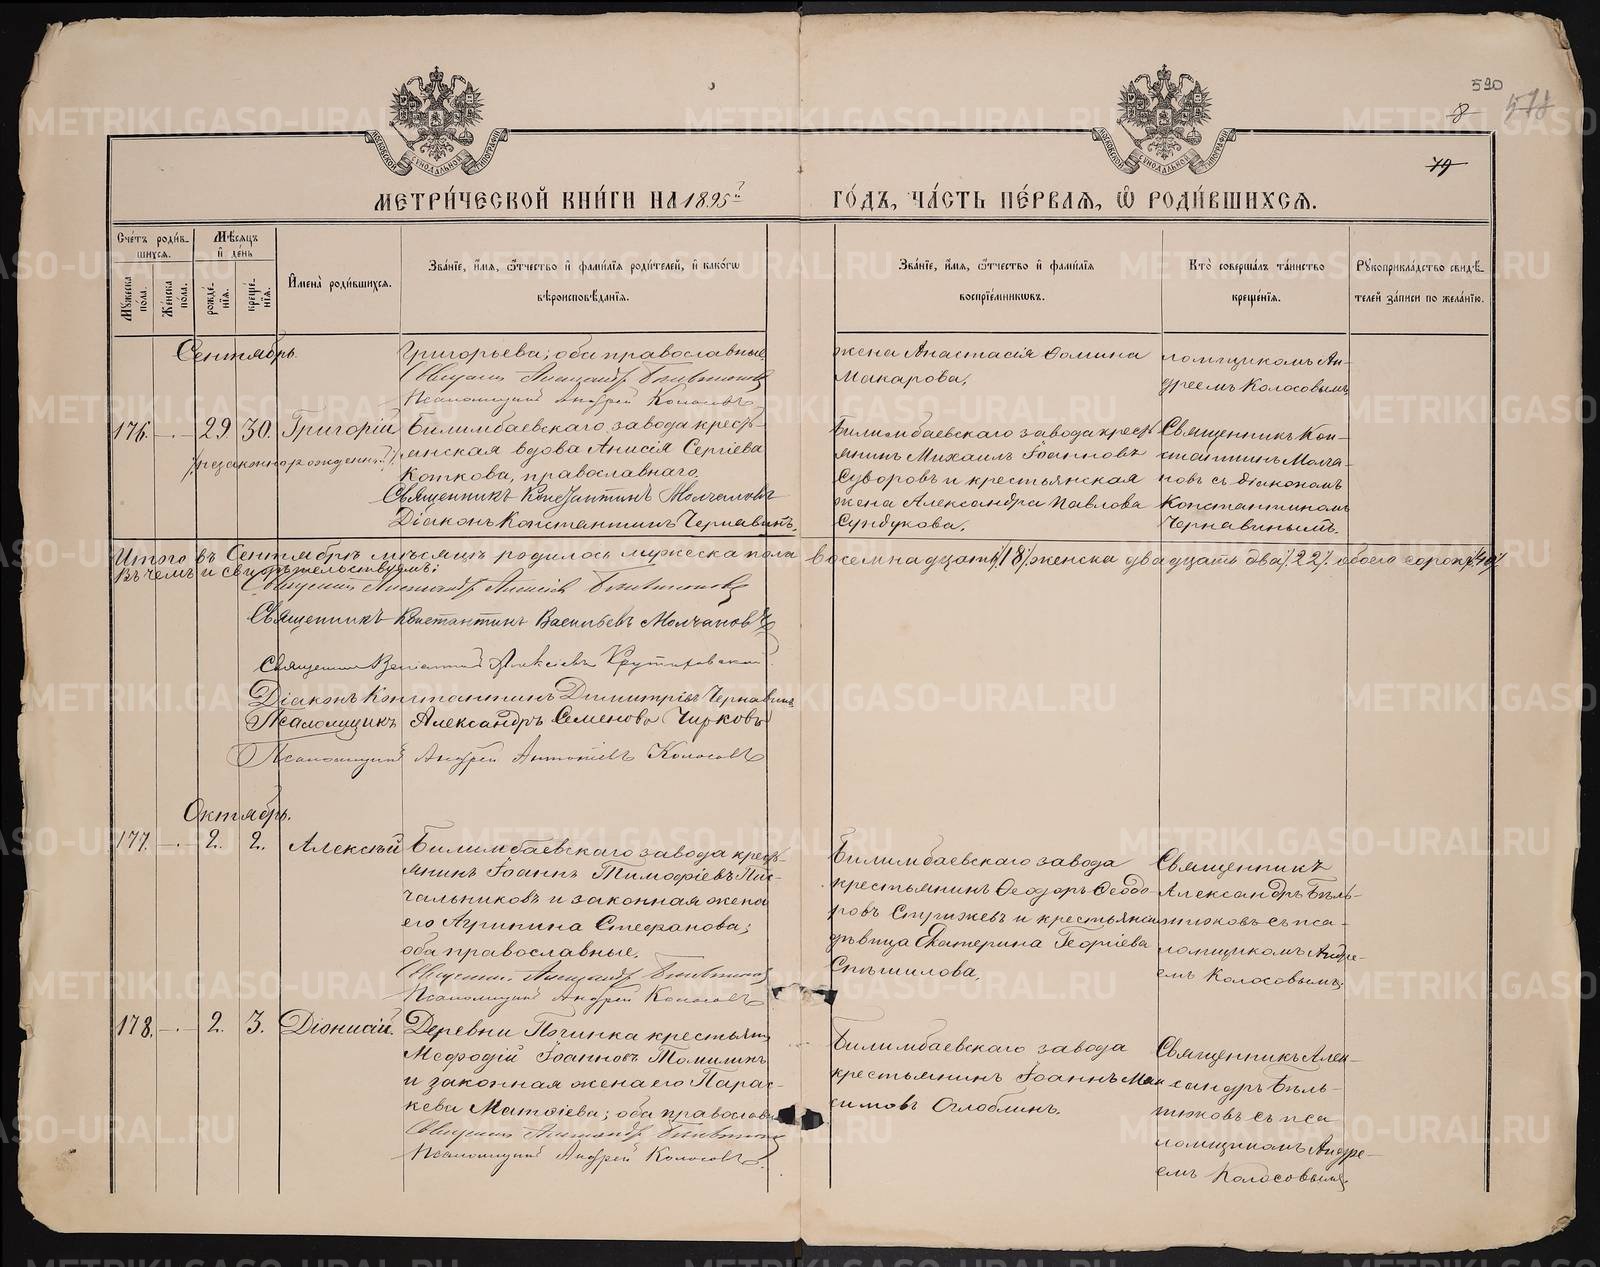 590
8
578
79
МОСКОВСКОЙ СѴНОДАЛЬНОЙ ТИПОГРАФІИ
МОСКОВСКОЙ СѴНОДАЛЬНОЙ ТИПОГРАФІИ
МЕТРИ́ЧЕСКОЙ КНИ́ГИ НА 1895й ГО́ДЪ, ЧА́СТЬ ПЕ́РВАЯ, Ѽ РОДИ́ВШИХСЯ.
Сче́тъ роди́в-
шихся.
Мѣ́сяцъ
и҆ де́нь
Мꙋ́жеска
по́ла.
Же́нска
по́ла.
рожде́-
нїѧ.
креще́-
нїѧ.
И҆мена̀ роди́вшихся.
Зва́нїе, и҆́мя, ѻ҆́тчество и҆ фами́лїя роди́телей, и҆ како́гѡ
вѣроисповѣ́данїя.
Зва́нїе, и҆́мя, ѻ҆́тчество и҆ фами́лїя
воспрїе́мникѡвъ.
Кто̀ соверша́лъ та́инство
креще́нїя.
Рꙋкоприкла́дство свидѣ́-
телей за́писи по жела́нїю.
Сентябрь.
Григорьева; оба православные
Священникъ Александръ Бѣльтюковъ
Псаломщикъ Андрей Колосовъ
жена Анастасія Ѳомина
Макарова.
ломщикомъ Ан-
дреемъ Колосовымъ
176. — . — 29 30. Григорій
(незаконнорожден.)
Билимбаевскаго завода кресть-
янская вдова Анисія Сергіева
Коткова, православнаго
Священникъ Константинъ Молчановъ
Діаконъ Константинъ Чернавинъ.
Билимбаевскаго завода кресть-
янинъ Михаилъ Іоанновъ
Суворовъ и крестьянская
жена Александра Павлова
Сундукова.
Священникъ Кон-
стантинъ Молча-
новъ съ діакономъ
Константиномъ
Чернавинымъ.
Итого въ Сентябрѣ мѣсяцѣ родилось мужеска пола восемнадцать /18/ женска двадцать два /22/ обоего сорокъ /40/
Въ чемъ и свидѣтельствуемъ:
Священникъ Александръ Алексіевъ Бѣльтюковъ
Священникъ Константинъ Васильевъ Молчановъ
Священникъ Веніаминъ Алексіевъ
Діаконъ Константинъ Димитріевъ Чернавинъ
Псаломщикъ Александръ Семеновъ Чирковъ
Псаломщикъ Андрей Антоніевъ Колосовъ
Октябрь.
177. — . — 2. 2. Алексѣй
Билимбаевскаго завода кресть-
янинъ Іоаннъ Тимофіевъ Пис-
чальниковъ и законная жена
его Агрипина Стефанова;
оба православные.
Священникъ Александръ Бѣльтюковъ
Псаломщикъ Андрей Колосовъ
Билимбаевскаго завода
крестьянинъ Ѳеодоръ Ѳеодо-
ровъ Стрижевъ и крестьянская
дѣвица Екатерина Георгіева
Спѣшилова.
Священникъ
Александръ Бѣль-
тюковъ съ пса-
ломщикомъ Андре-
емъ Колосовымъ.
178. — . — 2. 3. Діонисій.
Деревни Починка крестьянинъ
Меѳодій Іоанновъ Томилинъ
и законная жена его Парас-
кева Матѳіева; оба православн
Священникъ Александръ Бѣльтюковъ
Псаломщикъ Андрей Колосовъ.
Билимбаевскаго завода
крестьянинъ Іоаннъ Мак-
симовъ Оглоблинъ.
Священникъ Алек-
сандръ Бѣль-
тюковъ съ пса
ломщикомъ Андре-
емъ Колосовымъ.
METRIKI.GASO-URAL.RU